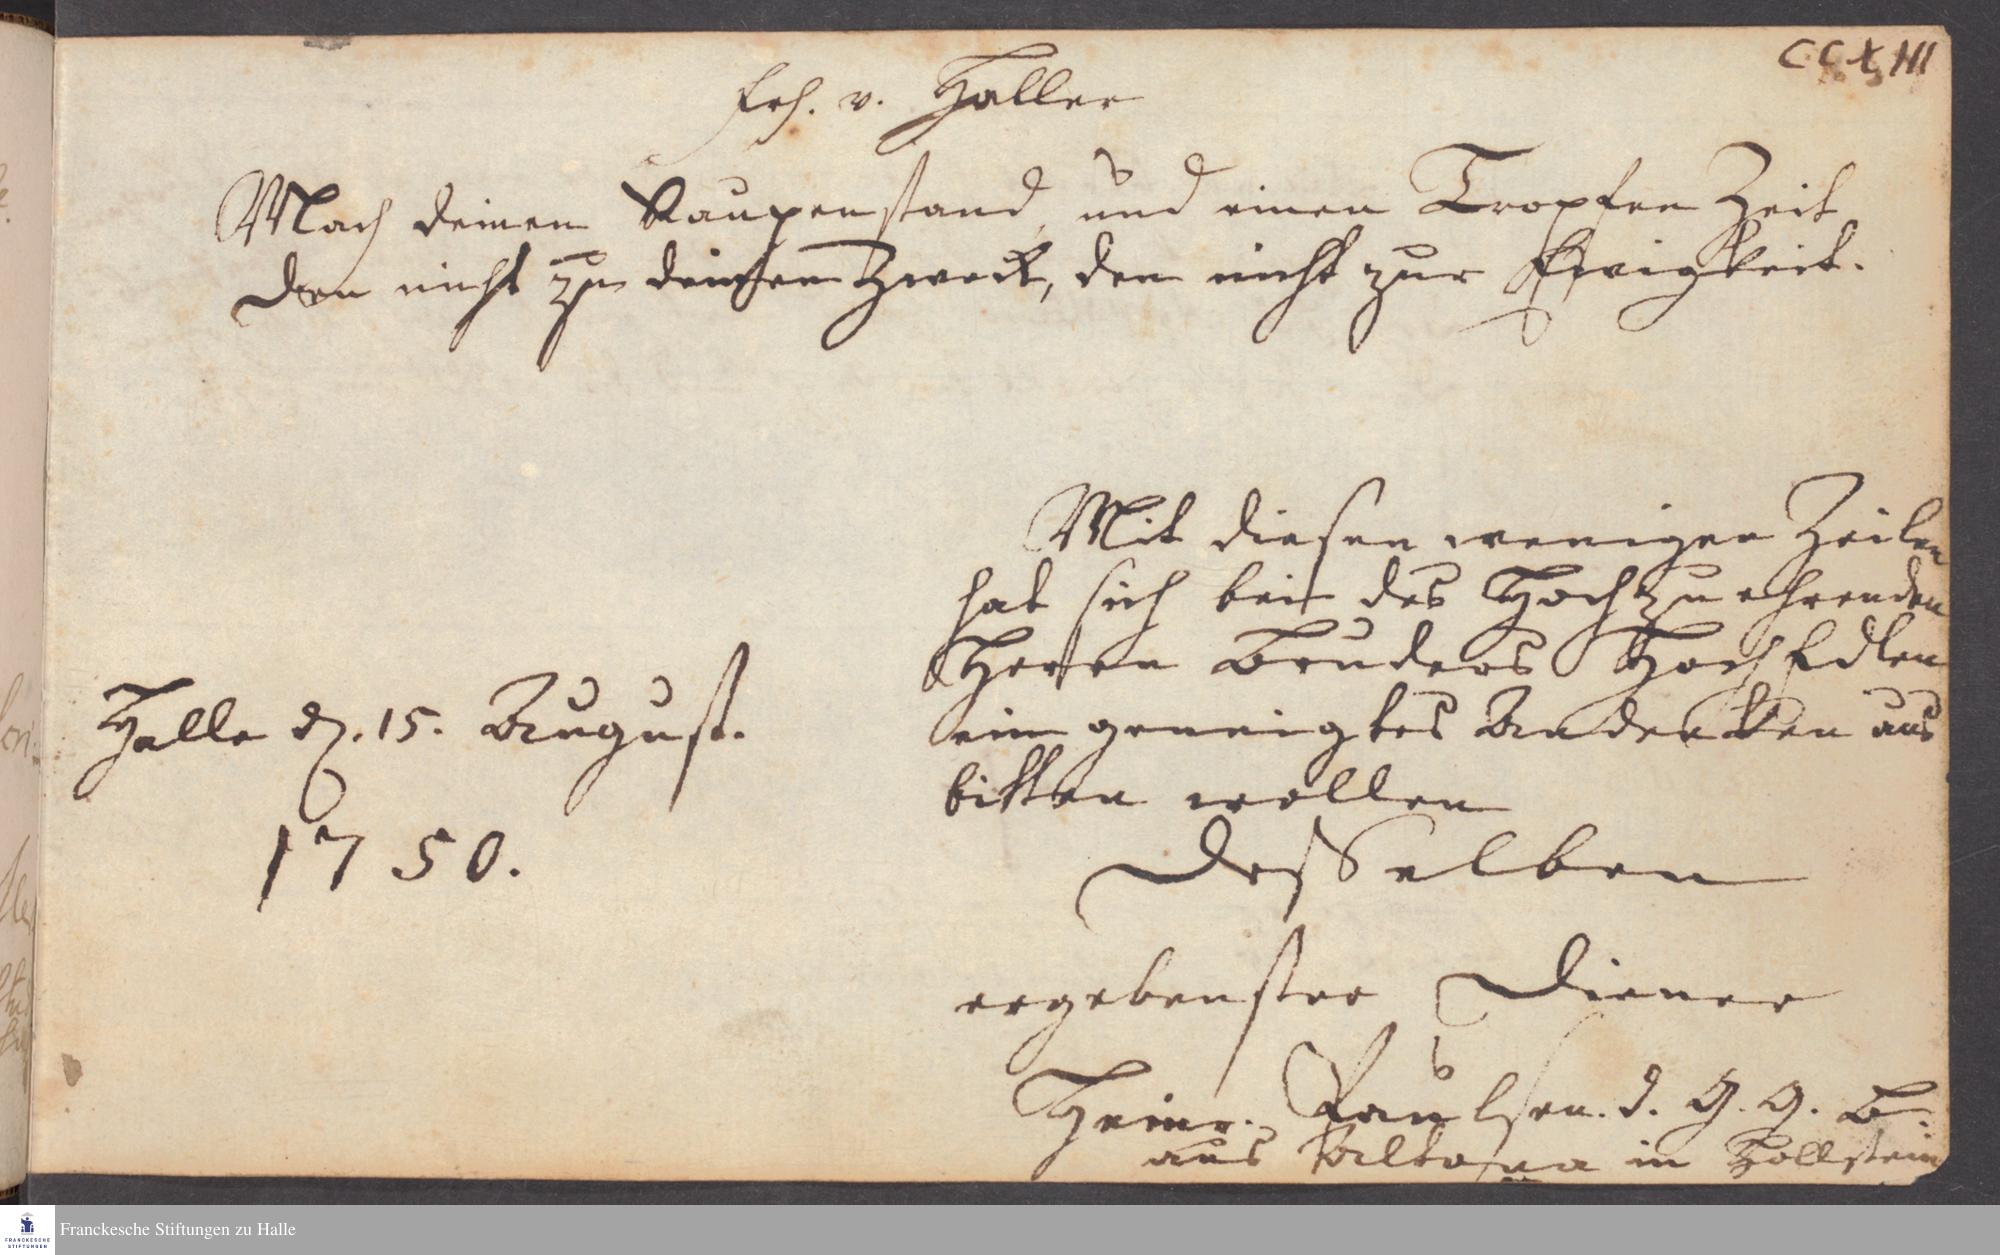 CCXIII
Frh. v. Haller
Mach deinen Raupenstand und einen Tropfen Zeit
den nicht zu deinem Zweck, den nicht zur Ewigkeit.
Mit diesen wenigen Zeilen
hat sich bei des Hochzuehrenden
Herren Bruders HochEdlen
ein geneigtes Andencken aus
bitten wollen
Desselben
Halle d. 15. August.
1750.
ergebenster Diener
Heinr. Paulsen. d. G. G. B.
aus Altona in Hollstein
Franckesche Stiftungen zu Halle
FRANCKESCHE
STIFTUNGEN